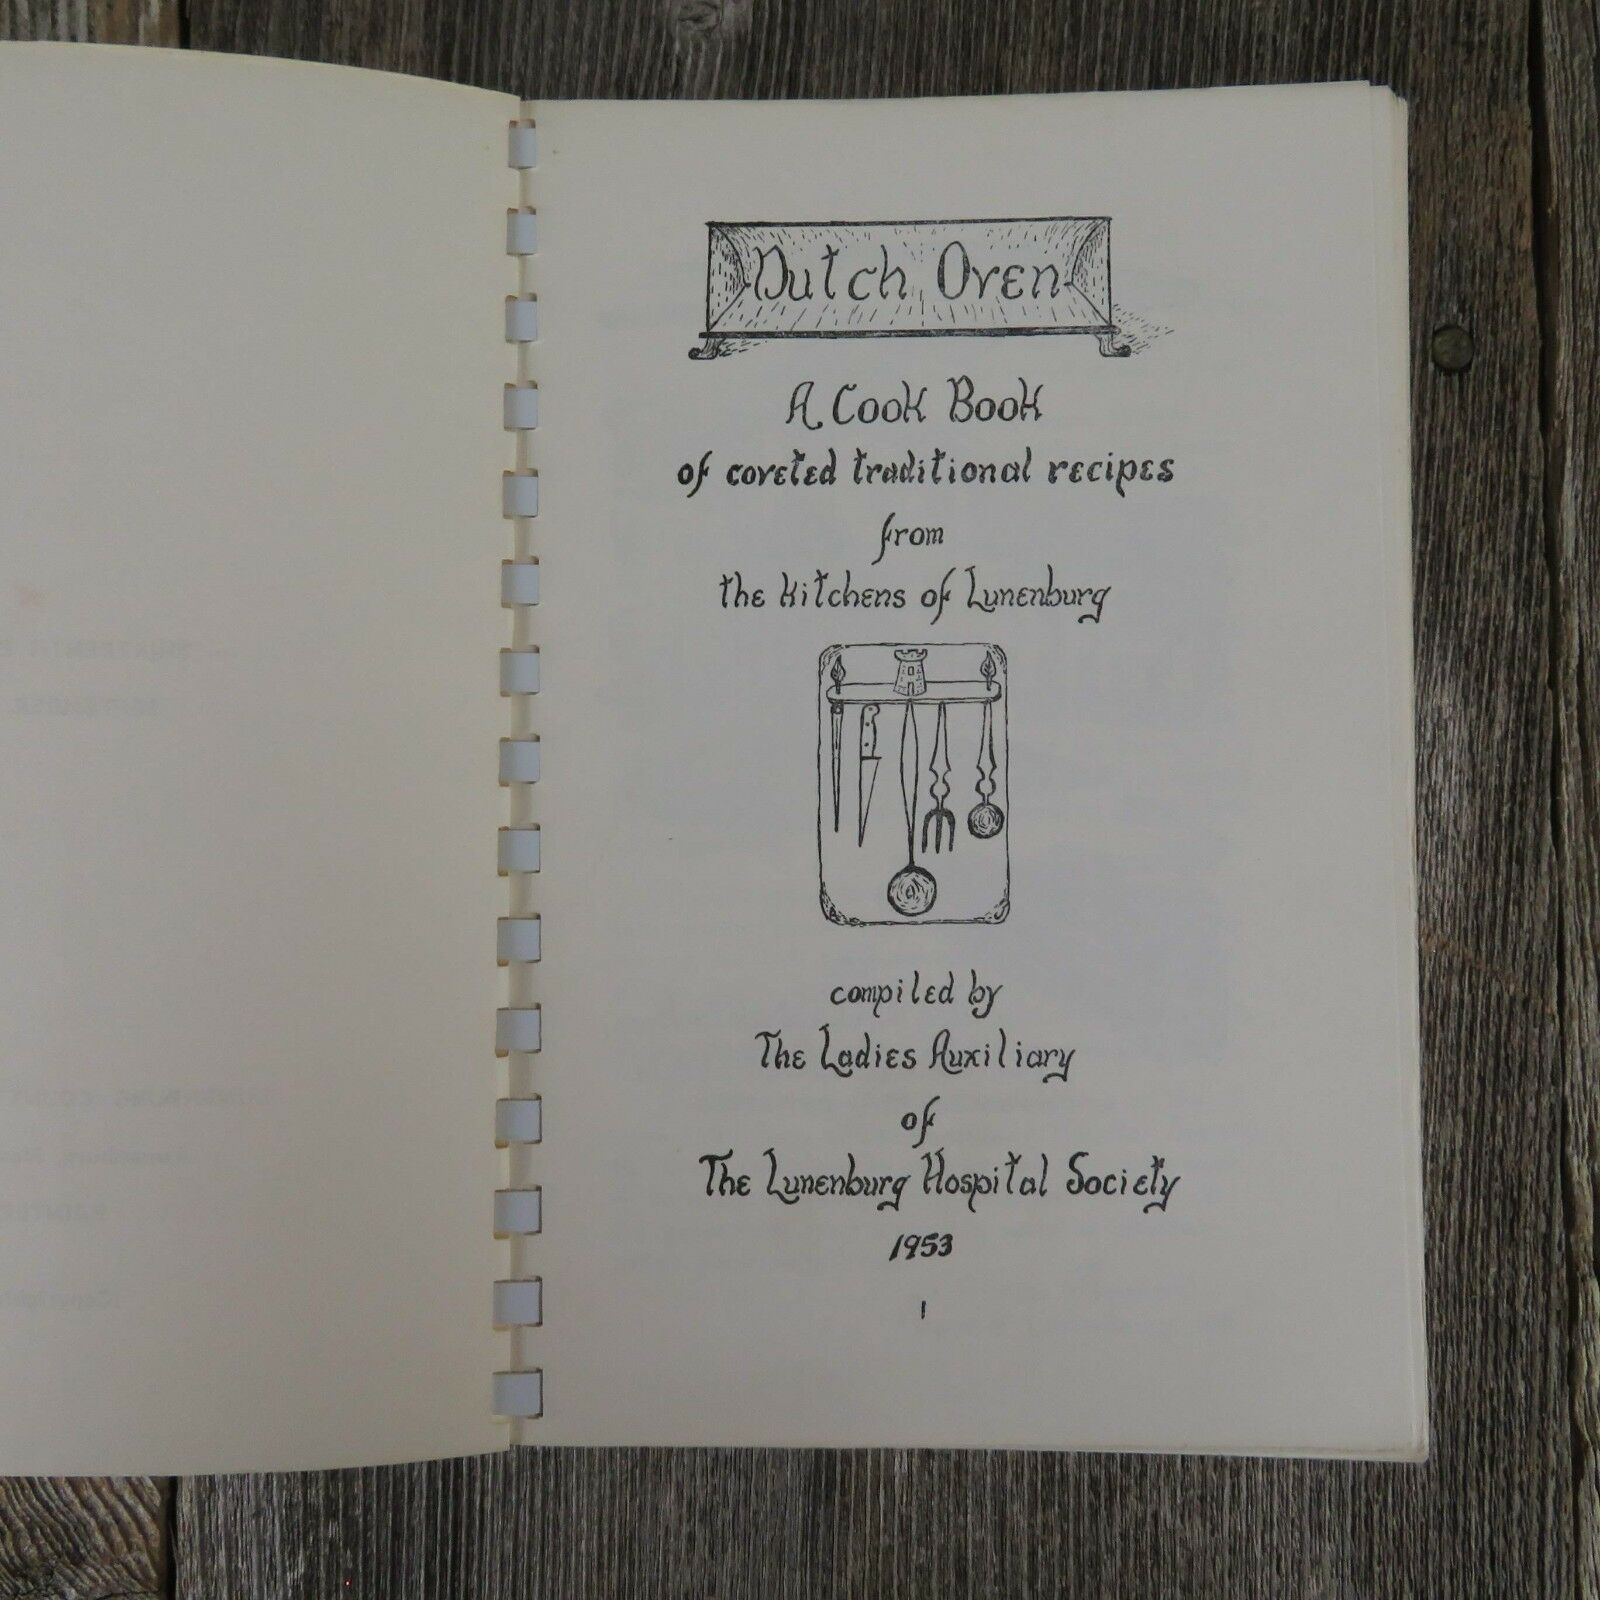 Dutch Oven
A Cook Book
of coveted traditional recipes
from
the kitchens of Lunenburg
compiled by
The Ladies Auxiliary
of
The Lunenburg Hospital Society
1953
1